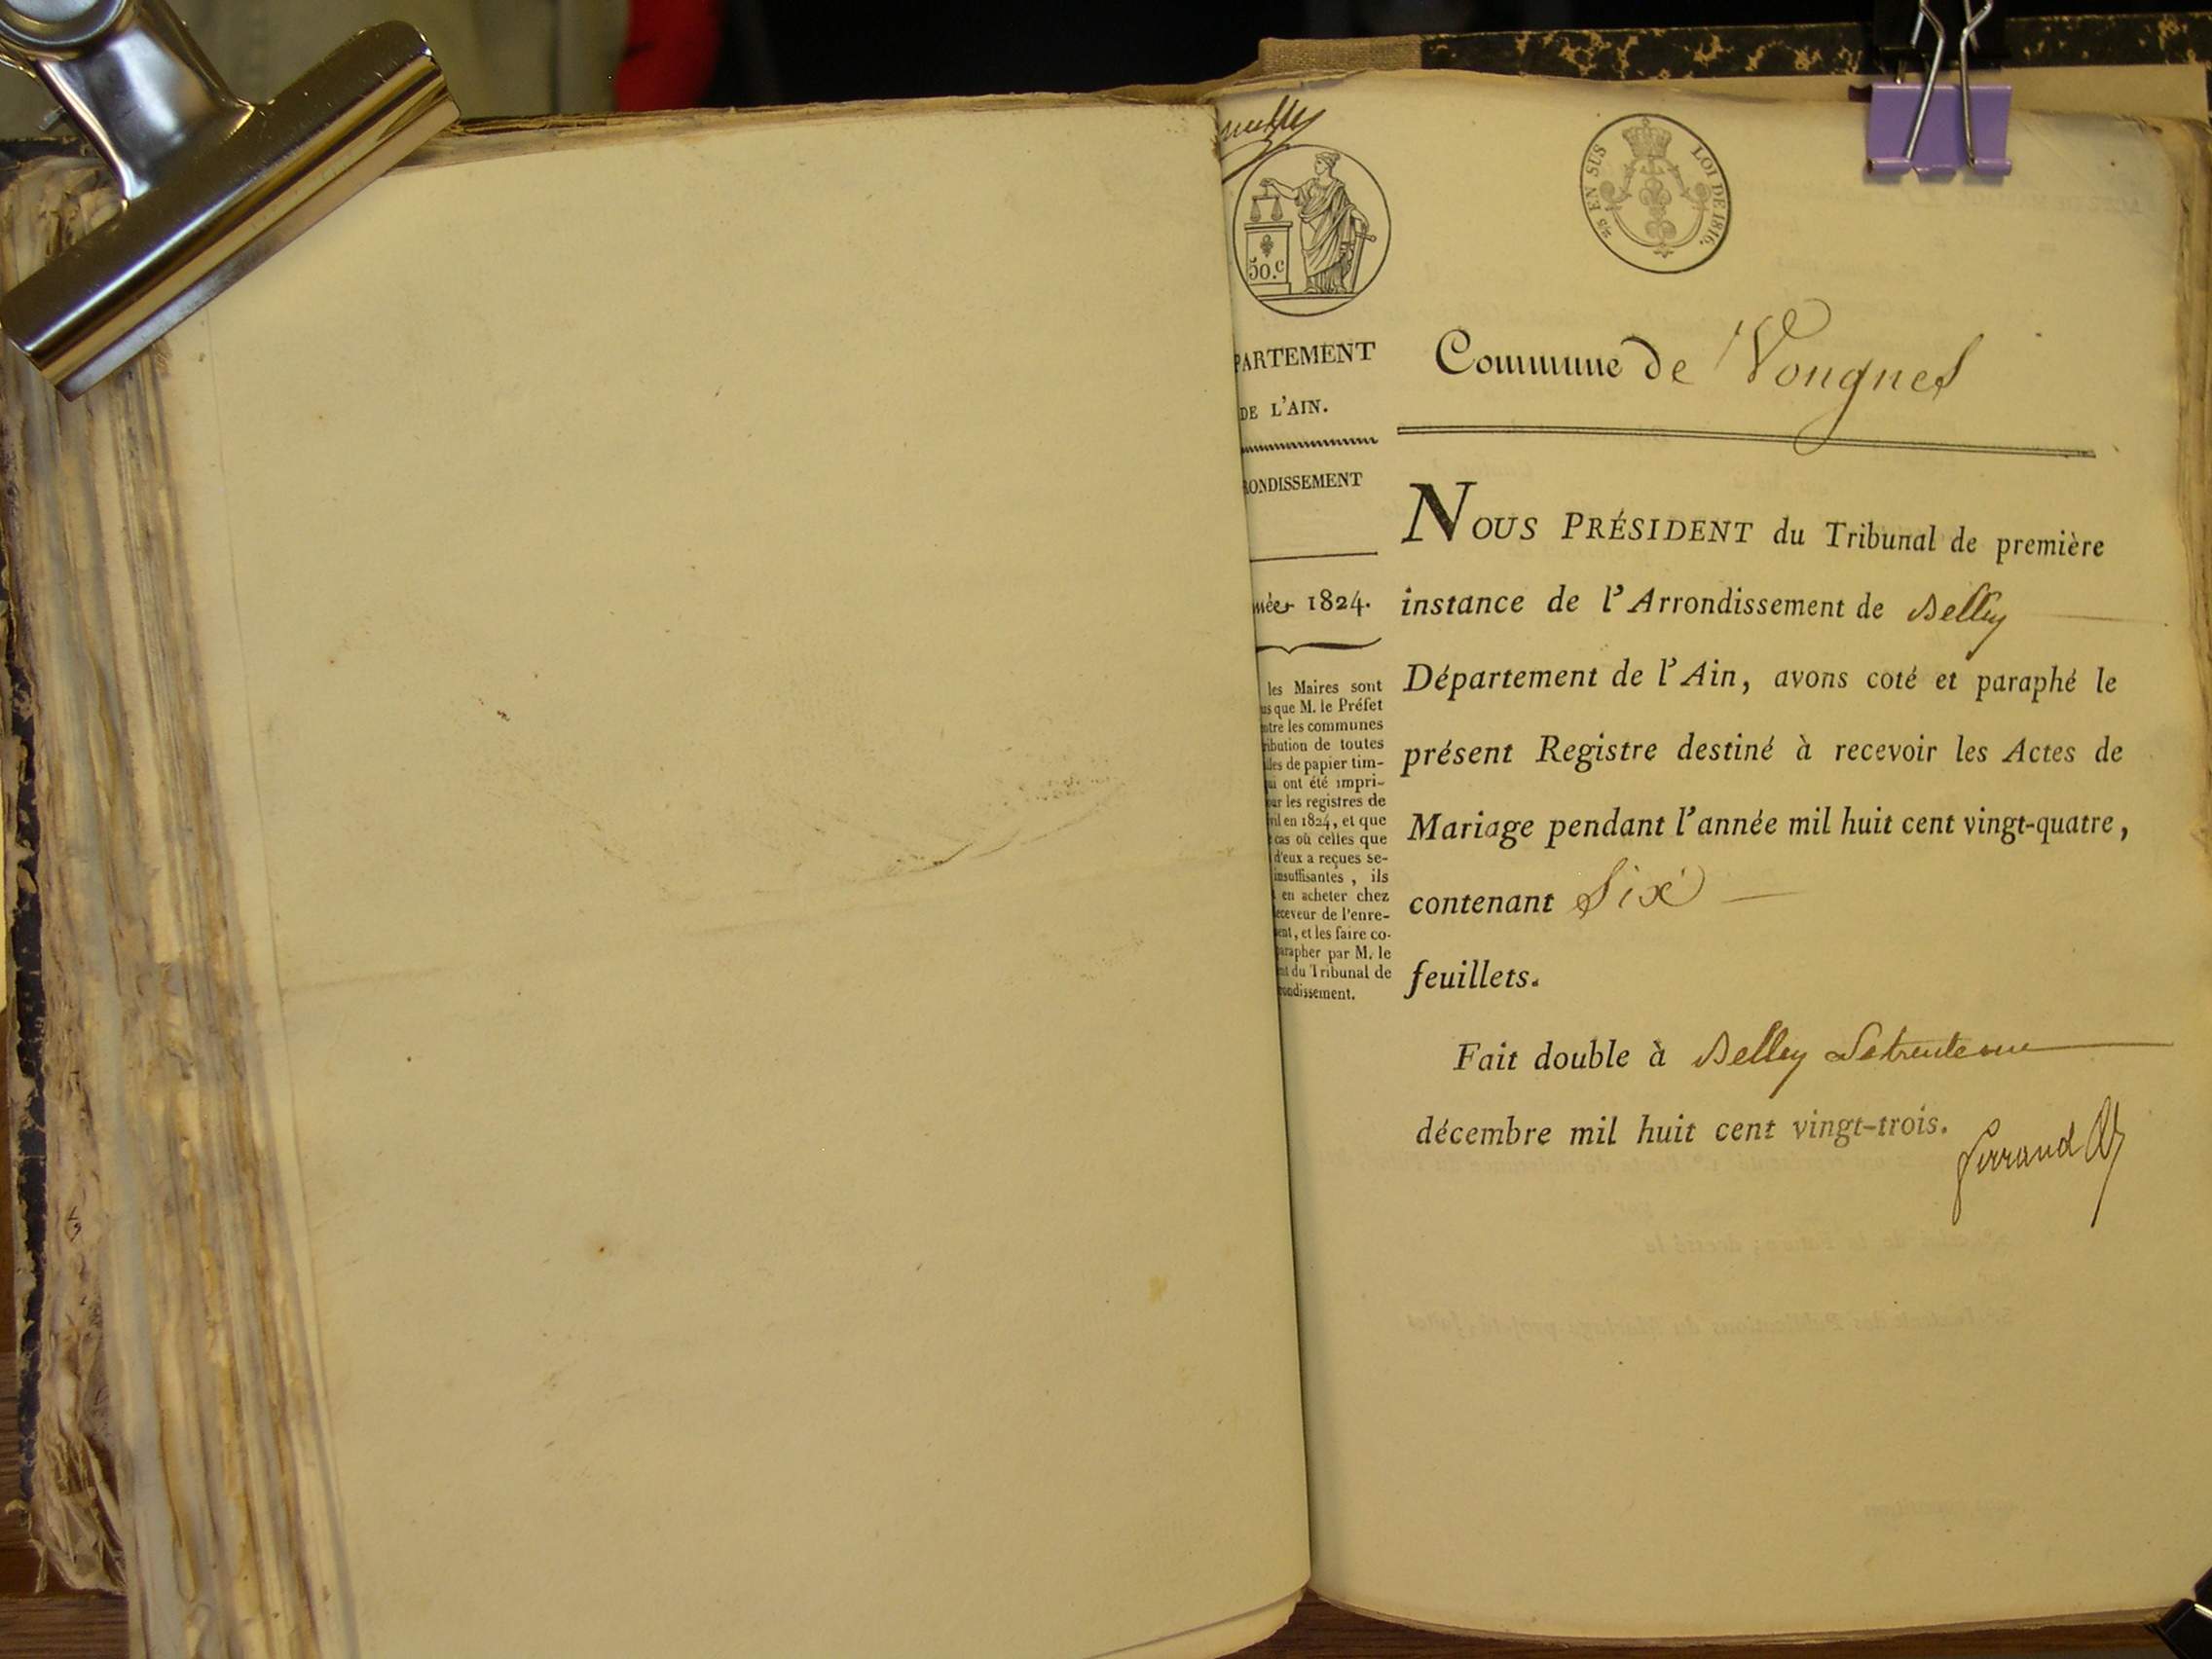 50.c
EN SUS
LOI DE 1816.
PARTEMENT
DE L'AIN.
RONDISSEMENT
née 1824.
les Maires sont
que M. le Préfet
tre les communes
ribution de toutes
les de papier tim-
ui ont été impri-
ur les registres de
vil en 1824, et que
cas où celles que
d'eux a reçues se-
insuffisantes, ils
en acheter chez
eceveur de l'enre-
ent, et les faire co-
arapher par M. le
nt du Tribunal de
ondissement.
Commune de Vongnes
NOUS PRÉSIDENT du Tribunal de première
instance de l'Arrondissement de Belley
Département de l'Ain, avons coté et paraphé le
présent Registre destiné à recevoir les Actes de
Mariage pendant l'année mil huit cent vingt-quatre,
contenant Six
feuillets.
Fait double à Belley le trente un
décembre mil huit cent vingt-trois.